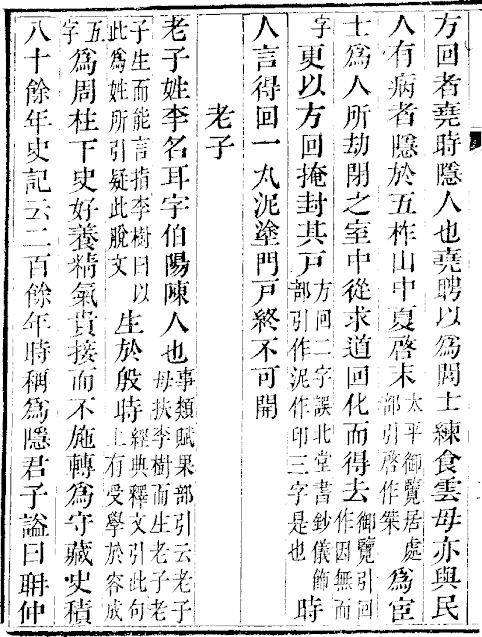 方回者堯時隱人也堯聘以爲閭士練食雲母亦與民
人有病者隱於五柞山中夏啓末太平御覽居處部引啓作桀爲宦
士爲人所劫閉之室中從求道回化而得去御覽引回作因無而
字更以方回掩封其戸方回二字誤北堂書鈔儀飾部引作泥作印三字是也時
人言得回一丸泥塗門戸終不可開
老子
老子姓李名耳字伯陽陳人也事類賦果部引云老子母扶李樹而生老子老
子生而能言指李樹曰以此爲姓所引疑此脫文生於殷時經典釋文引此句上有受學於容成
五字爲周柱下史好養精氣貴接而不施轉爲守藏史積
八十餘年史記云二百餘年時稱爲隱君子謚曰聃仲